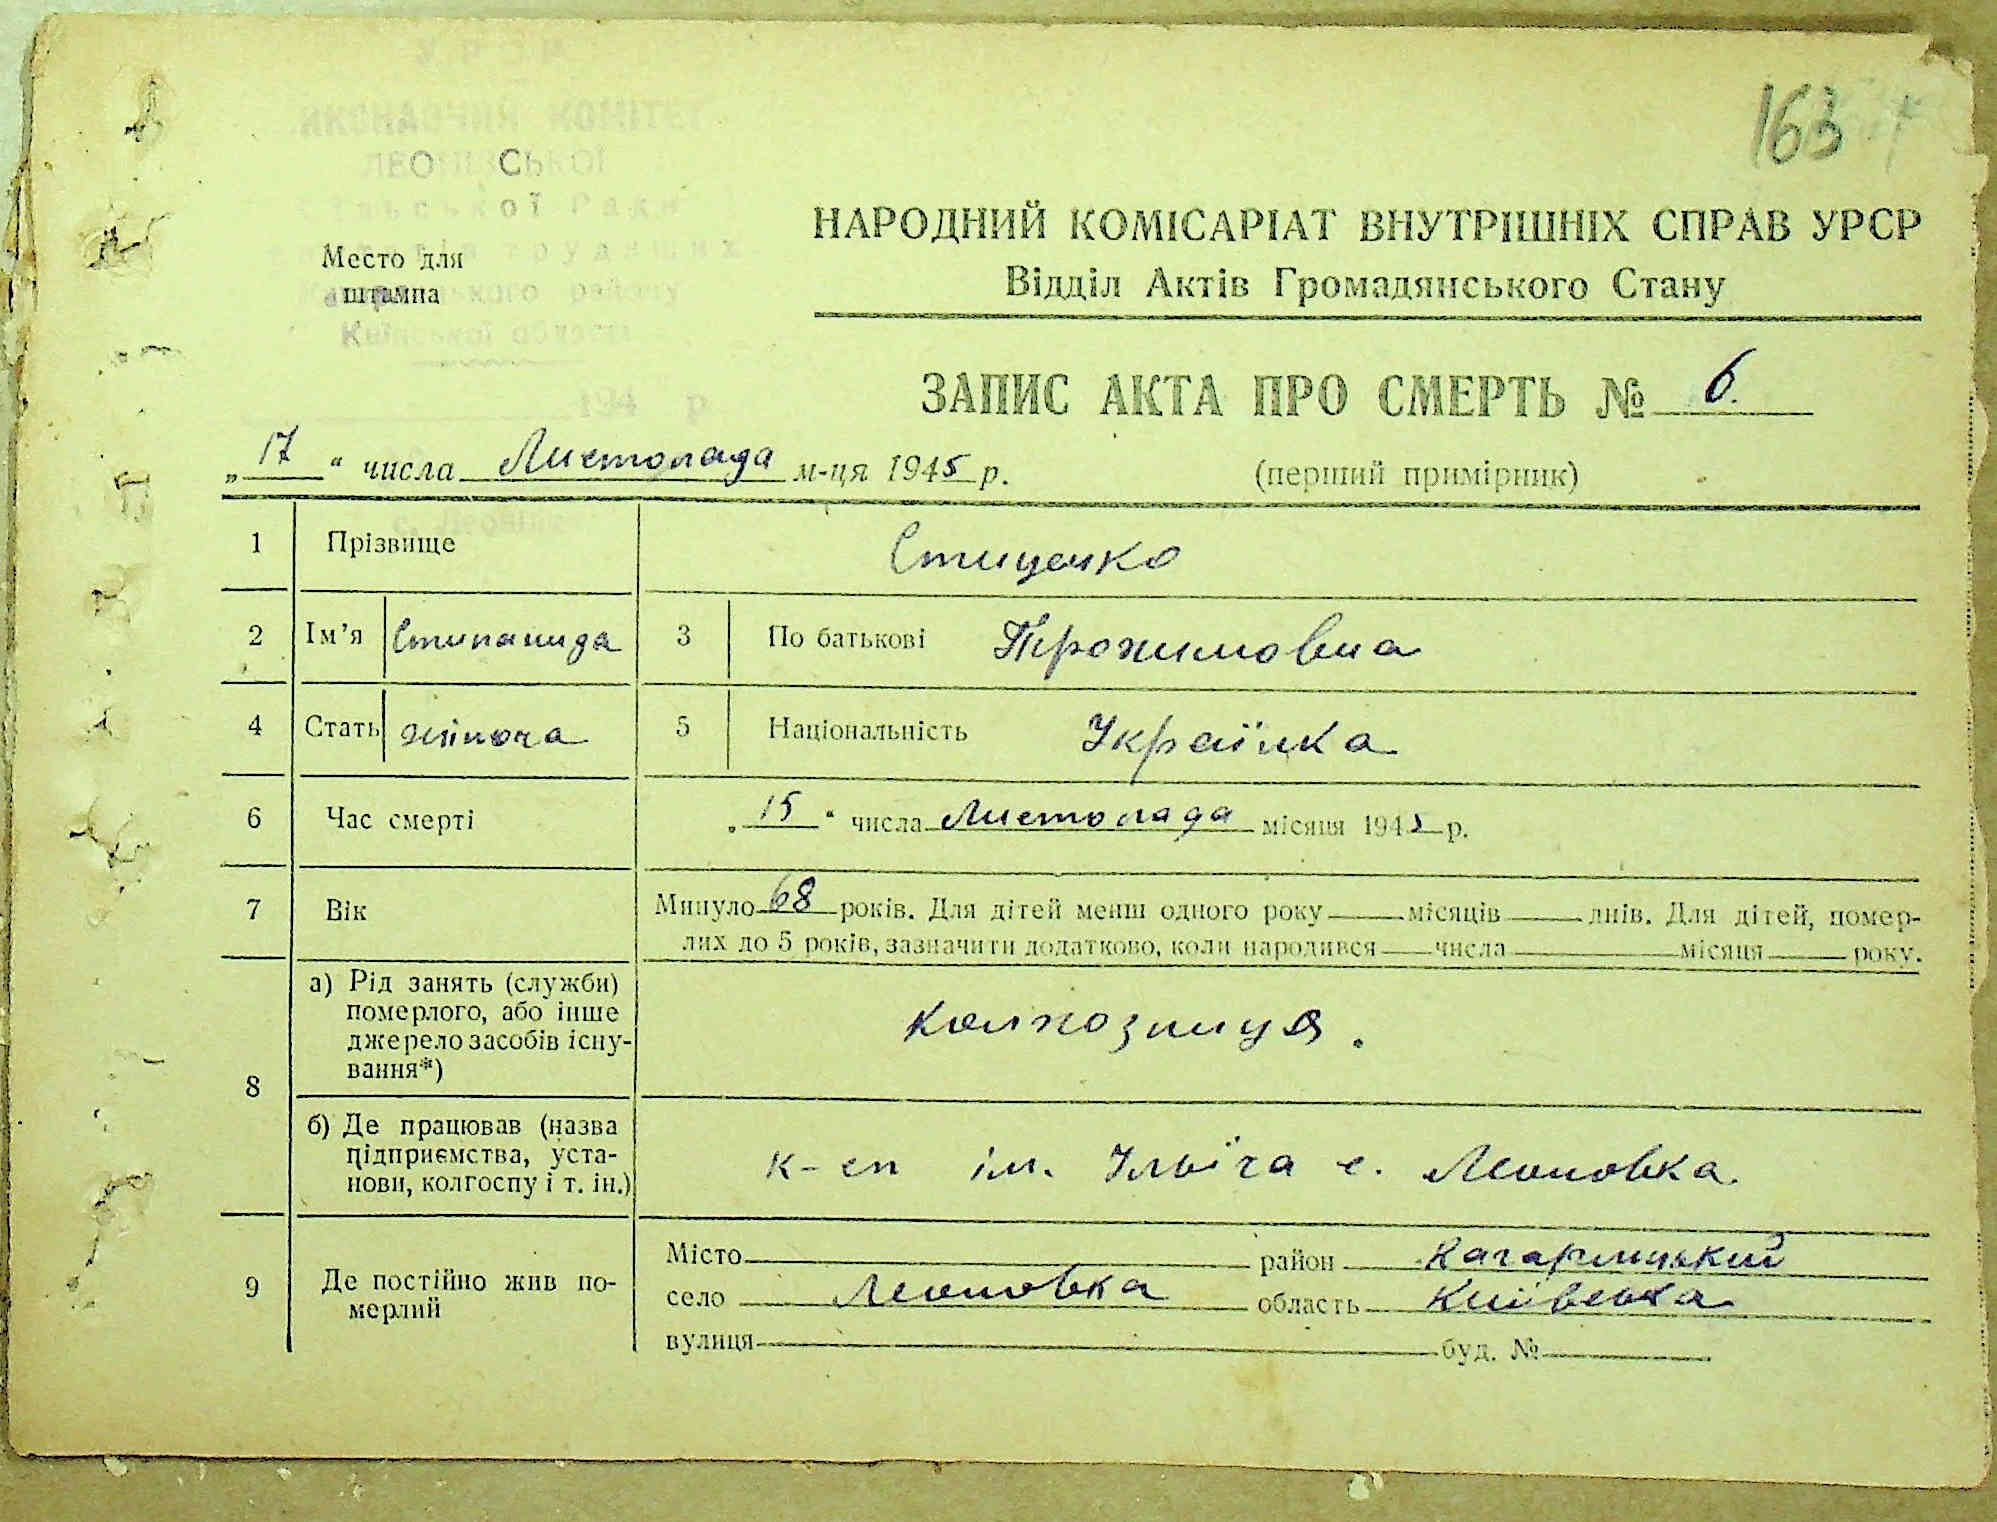 163
ВИКОНАВЧИЙ КОМІТЕТ
ЛЕОНІВСЬКОЇ
Сільської Ради
депутатів трудящих
району
Київської області
194 р
Место для
штампа
НАРОДНИЙ КОМІСАРІАТ ВНУТРІШНІХ СПРАВ УРСР
Відділ Актів Громадянського Стану
ЗАПИС АКТА ПРО СМЕРТЬ № 6.
„17“ числа Листопада м-ця 1945 р. (перший примірник)
1 Прізвище Стиценко
2 Ім’я Стипанида 3 По батькові Трохимовна
4 Стать жіноча 5 Національність Українка
6 Час смерті „15“ числа Листопада місяця 1945 р.
7 Вік Минуло 68 років. Для дітей менш одного року місяців днів. Для дітей, помер-
лих до 5 років, зазначити додатково, коли народився числа місяця року.
8 а) Рід занять (служби)
померлого, або інше
джерело засобів існу-
вання*) колхозниця.
б) Де працював (назва
підприємства, уста-
нови, колгоспу і т. ін.) к-сп ім. Ільїча с. Леоновка.
9 Де постійно жив по-
мерлий
Місто район Кагарлицький
село Леоновка область Київська
вулиця буд. №